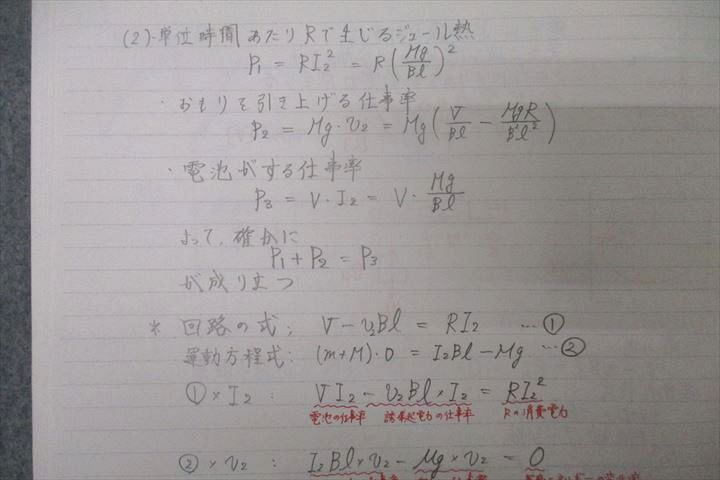 (2)・単位時間あたりRで生じるジュール熱
P₁ = RI₂² = R(Mg/Bl)²
・おもりを引き上げる仕事率
P₂ = Mg・v₂ = Mg(V/Bl - MgR/B²l²)
・電池がする仕事率
P₃ = V・I₂ = V・Mg/Bl
よって、確かに
P₁ + P₂ = P₃
が成り立つ
* 回路の式; V - v₂Bl = RI₂ …①
運動方程式: (m+M)・0 = I₂Bl - Mg …②
①×I₂ : VI₂ - v₂Bl×I₂ = RI₂²
電池の仕事率 誘導起電力の仕事率 Rの消費電力
②×v₂ : I₂Bl×v₂ - Mg×v₂ = 0